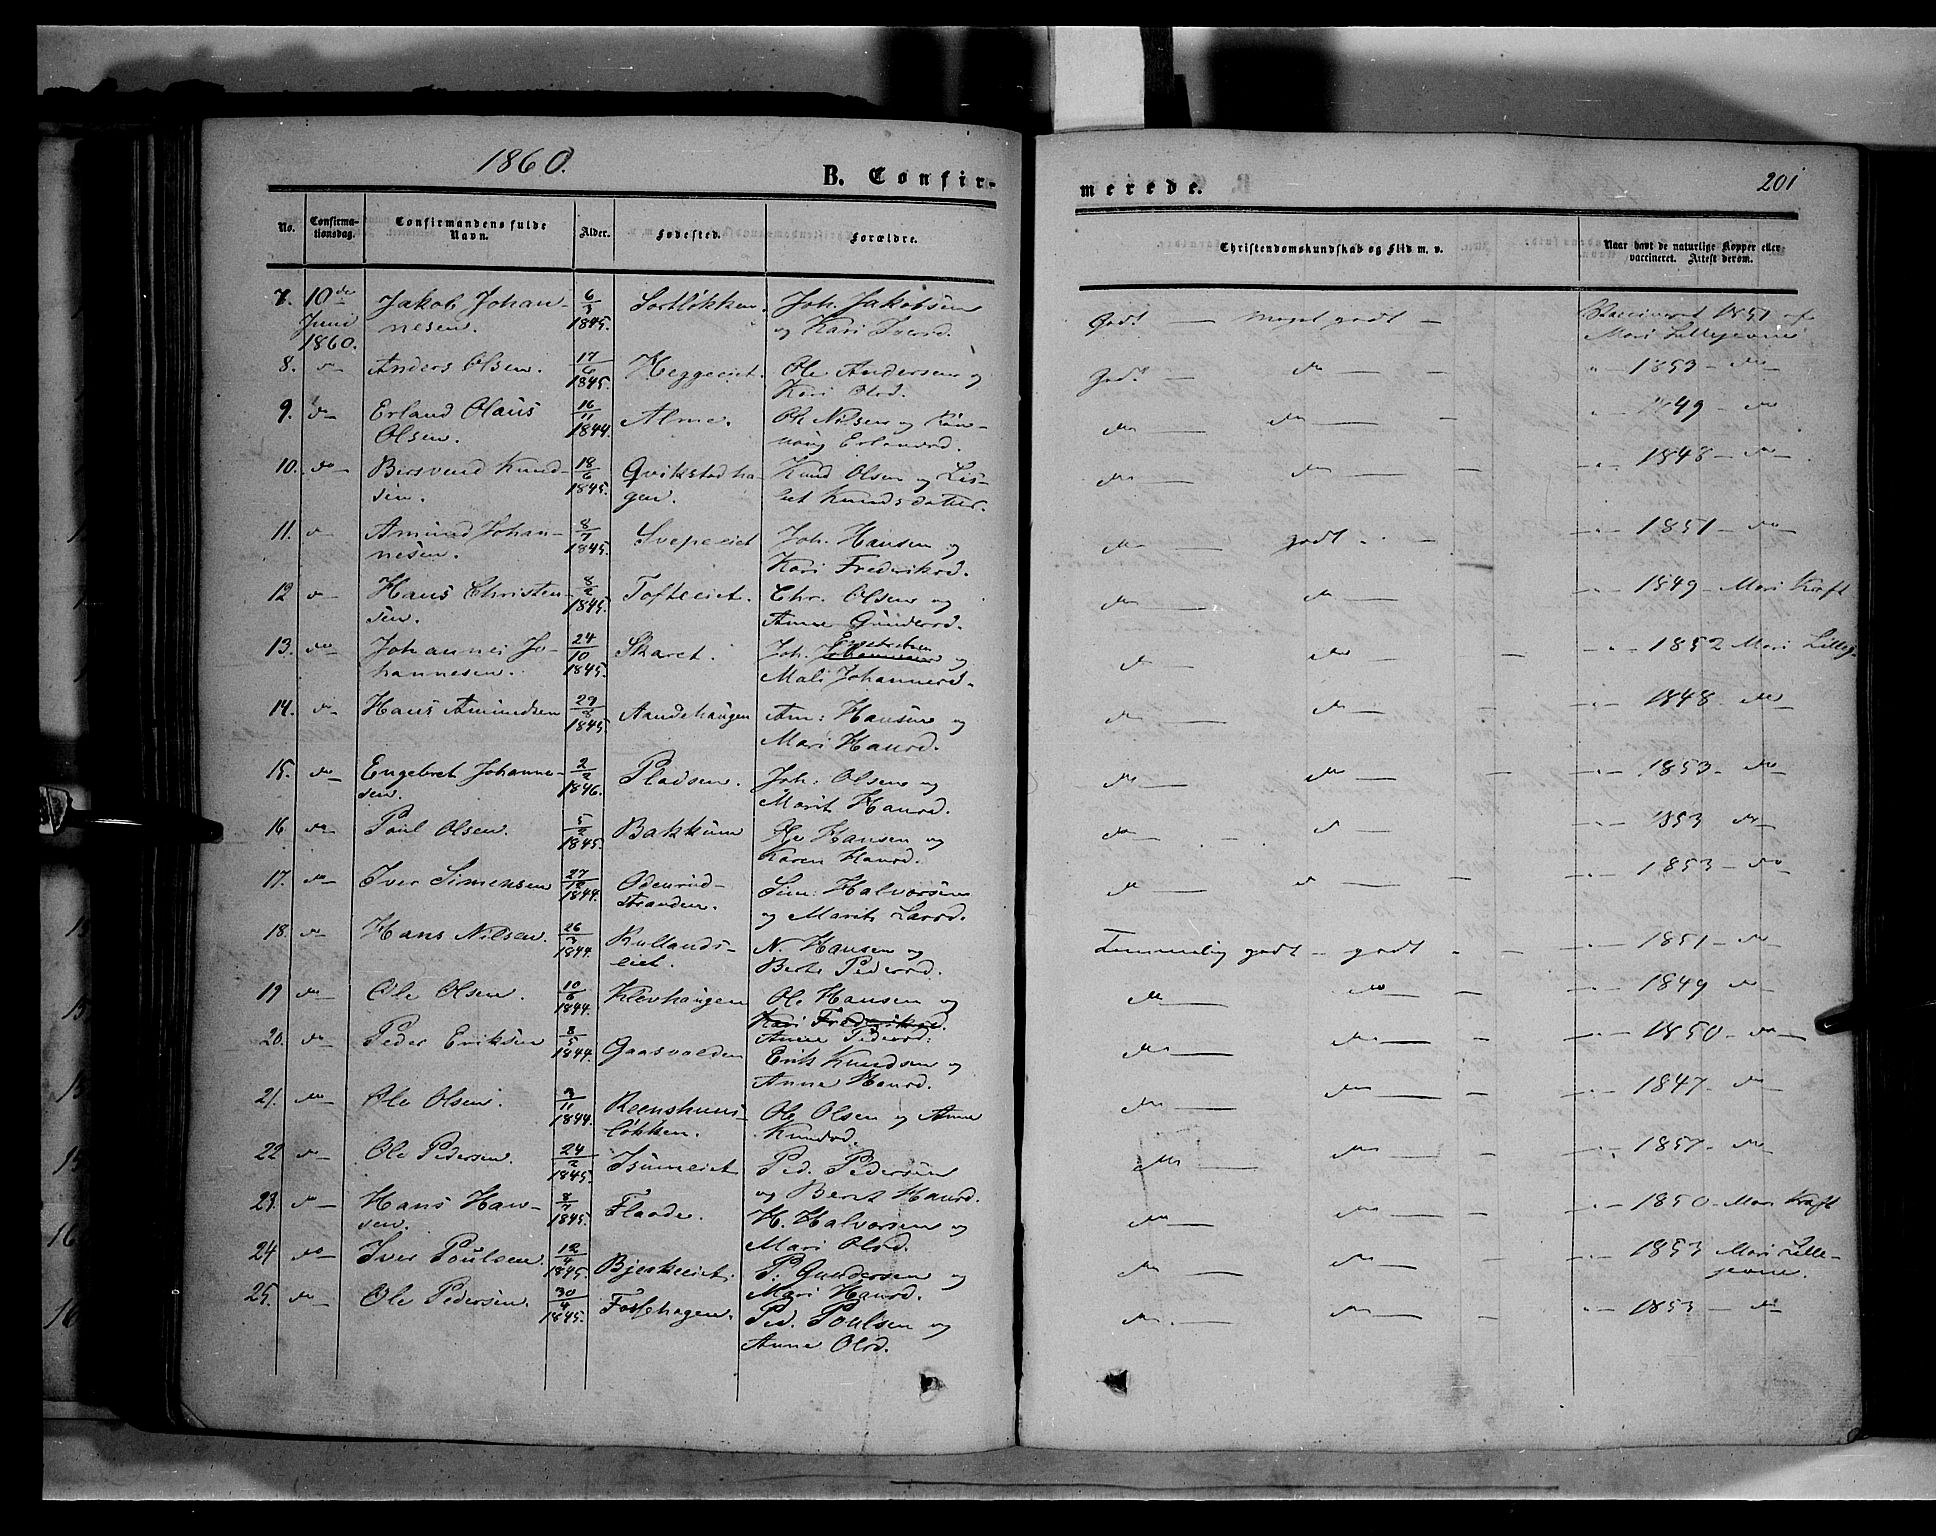 1860.
B. Confir-
No.
Confirma-
tionsdag.
Confirmandens fulde
Navn.
Alder.
Fødested.
Forældre.
7. 10de Jakob Johan- 6/3 Sortløkken. Joh. Jakobsen
Juni nesen. 1845. og Kari
1860.
8. do Anders Olsen. 17/6 1845. Heggeeiet. Ole Andersen og
Kari Olsd.
9. do Erland Olaus 16/11 Alme. Ole Nilsen og Rön-
Olsen. 1844. naug Erlandsd.
10. do Bersvend Knud- 18/6 Qvikstadha- Knud Olsen og Lis-
sen. 1845. gen. bet Knudsdatter.
11. do Amund Johan- 8/7 Svepeeiet Joh. Hansen og
nesen. 1845. Kari Frederiksd.
12 do Hans Christen- 8/2 Tofteeiet. Chr. Olsen og
sen. 1845. Anne Gundersd.
13. do Johannes Jo- 24/10 Skaret. Joh. Engebretsen og
hannesen. 1845. Mali Johannesd.
14. do Hans Amundsen 1845. Aandehaugen Am: Hansen og
Mari Hansd.
15. do Engebret Johanne- 2/2 Pladsen. Joh: Olsen og
sen. 1846. Marit Hansd.
16 do Poul Olsen. 5/2 1845. Bakkum Hansen og
Karen Hansd.
17. do Iver Simensen 27/12 1844. Odenrud- Sim: Halvorsen
stranden. og Marit Larsd.
18. do Hans Nilsen. 26/7 1844. Rullands- N. Hansen og
eiet. Berte Pedersd.
19 do Ole Olsen. 10/6 1844. Klevhaugen Ole Hansen og
Kari Frederiksd.
Anne Pedersd:
20. do Peder Eriksen 8/5 1844. Gaasvolden Erik Knudsen og
Anne Hansd.
21. do Ole Olsen. 1844. Reenshuus- Ole Olsen og Anne
løkken. Knudsd.
22 do Ole Pedersen. 24/2 1845. Isumeiet Ped. Pedersen
og Berit Hansd.
23. do Hans Han- 8/7 Flaade. H. Halvorsen og
sen. 1845. Mari Olsd.
24 do Iver Poulsen. 12/4 1845. Bjerkeeiet. P. Gundersen og
Mari Hansd.
25. do Ole Pedersen. 30/4 1845. Fossehagen. Ped. Poulsen og
Anne Olsd.
merede.
201
Christendomskundskab og Flid m. v.
Naar havt de naturlige Kopper eller
vaccineret. Attest derom.
Godt — meget godt — Vaccineret 1851 af
Mari Lillejevne
Godt — do — " 1853 — do
do — do — " 1849 — do
do — do — " — 1848 — do
do — godt — " — 1851 — do
do — do — " — 1849 — Mari Kraft
do — do — " — 1852 Mari Lillej-
do — do — " — 1848 — do
do — do — " — 1853 — do
do — do — " — 1853 do
do — do — " — 1853 — do
Temmelig godt — godt " — " — 1851 — do
do — do — " — 1849 — do
do — do — " — 1850 — do
do — do — " — 1847 — do
do — do — " — 1851 — do
do — do — " — 1850 — Mari Kraft
do — do — " — 1853 Mari Lille-
jevne.
do — do — " — 1853 — do